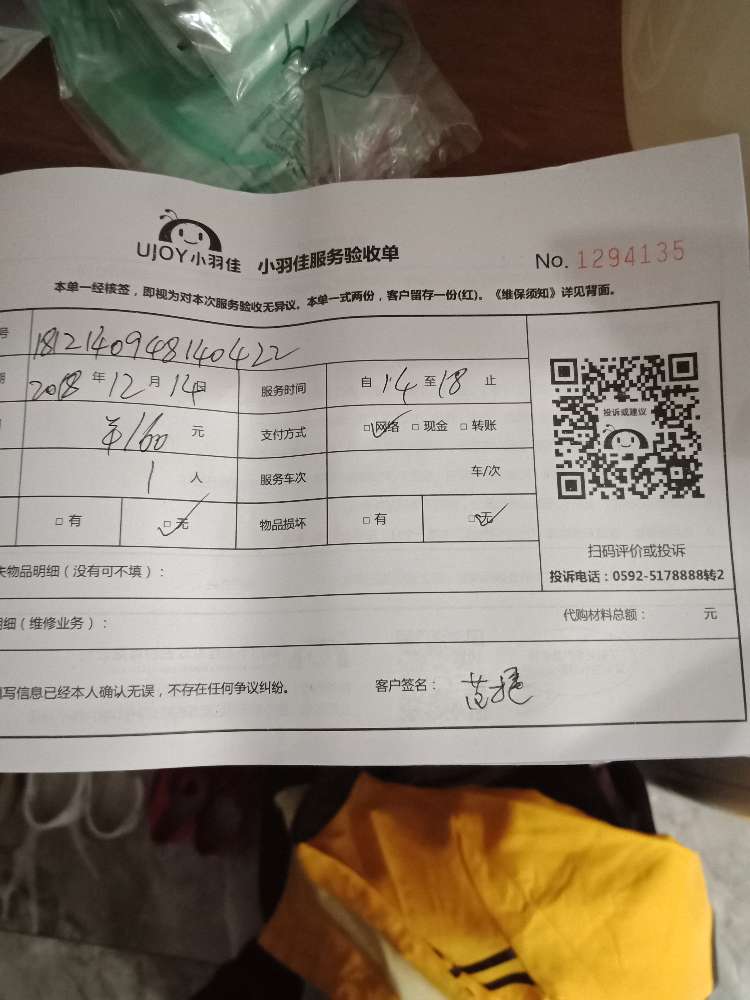 UJOY小羽佳 小羽佳服务验收单 No. 1294135
本单一经核签，即视为对本次服务验收无异议。本单一式两份，客户留存一份(红)。《维保须知》详见背面。
号 181214094814042​2
2018 年 12 月 14 日 服务时间 自 14 至 18 止
¥160 元 支付方式 □网络 □现金 □转账
1 人 服务车次 车/次
□有 □无 物品损坏 □有 □无
投诉或建议
扫码评价或投诉
投诉电话：0592-5178888转2
失物品明细（没有可不填）：
明细（维修业务）： 代购材料总额： 元
填写信息已经本人确认无误，不存在任何争议纠纷。 客户签名：